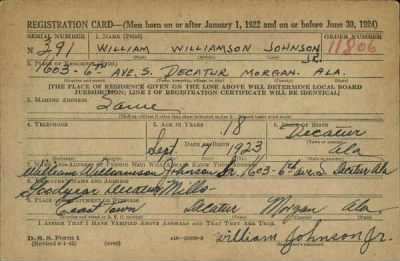 REGISTRATION CARD—(Men born on or after January 1, 1922 and on or before June 30, 1924)
SERIAL NUMBER 1. NAME (Print) ORDER NUMBER
N 391 WILLIAM WILLIAMSON JOHNSON JR. 11806
2. PLACE OF RESIDENCE (Print)
1603-6th AVE, S. DECATUR MORGAN. ALA.
[THE PLACE OF RESIDENCE GIVEN ON THE LINE ABOVE WILL DETERMINE LOCAL BOARD
JURISDICTION; LINE 2 OF REGISTRATION CERTIFICATE WILL BE IDENTICAL]
3. MAILING ADDRESS
Same
4. TELEPHONE 5. AGE IN YEARS 6. PLACE OF BIRTH
18 Decatur
DATE OF BIRTH (Town or county)
Sept. 1923 Ala
7. NAME AND ADDRESS OF PERSON WHO WILL ALWAYS KNOW YOUR ADDRESS
William Williamson Johnson Sr. 1603-6th Ave S. Decatur Ala
8. EMPLOYER'S NAME AND ADDRESS
Goodyear Decatur Mills
9. PLACE OF EMPLOYMENT OR BUSINESS
East Town Decatur Morgan Ala.
I AFFIRM THAT I HAVE VERIFIED ABOVE ANSWERS AND THAT THEY ARE TRUE.
D. S. S. Form 1
(Revised 6-1-42)
William Johnson Jr.